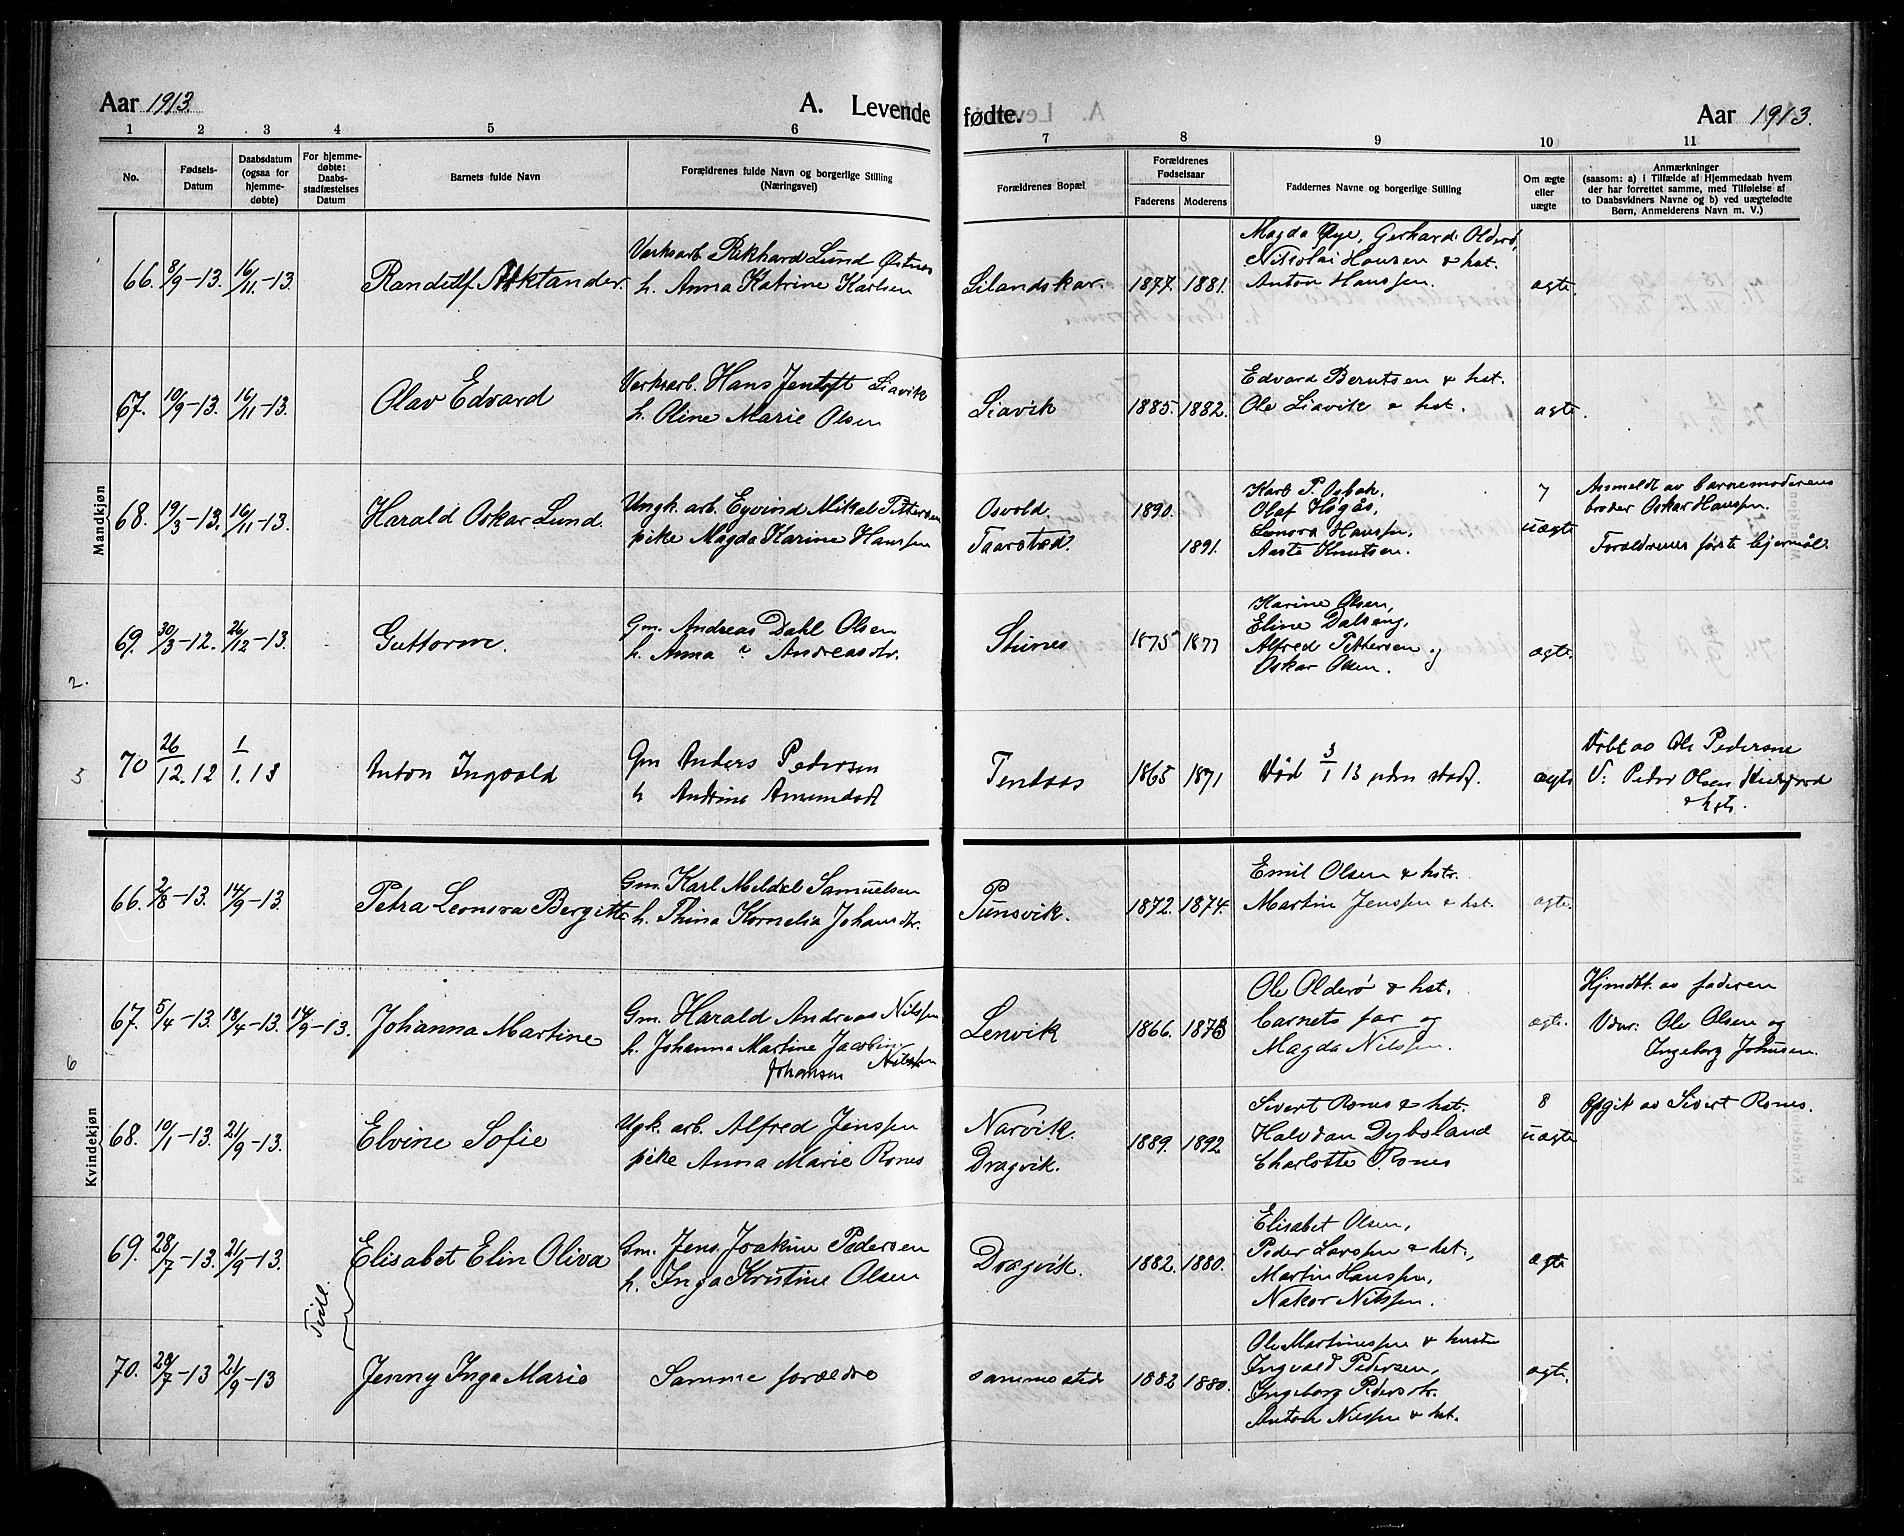 Aar 1913.
A. Levende
fødte.
Aar 1913.
1 2 3 4 5 6 7 8 9 10 11
No.
Fødsels-Datum
Daabsdatum (ogsaa for hjemme-døbte)
For hjemme-døbte: Daabs-stadfæstelses Datum
Barnets fulde Navn
Forældrenes fulde Navn og borgerlige Stilling (Næringsvei)
Forældrenes Bopæl
Forældrenes Fødselsaar
Faderens Moderens
Faddernes Navne og borgerlige Stilling
Om ægte eller uægte
Anmærkninger
(saasom: a) i Tilfælde af Hjemmedaab hvem
der har forrettet samme, med Tilføielse af
to Daabsvidners Navne og b) ved uægtefødte
Børn, Anmelderens Navn m. V.)
Mandkjøn
66. 8/9-13. 16/11-13.
Lund
h. Anna Katrine Karlsen
1877. 1881.
Magda Øye, Gerhard Olderø,
Nikolai Hansen & hst.
Anton Hanssen.
ægte.
67. 10/9-13. 16/11-13.
Olav Edvard
Verksarb. Hans Jentoft Liavik
h. Oline Marie Olsen
Liavik
1885. 1882.
Edvard Berntsen & hst.
Ole Liavik & hst.
ægte.
68. 19/3-13. 16/11-13.
Harald Oskar Lund.
Ungk. arb. Eyvind Mikal Pettersen
pike Magda Karine Hanssen
Osvold.
Taarstad.
1890.
1891.
Karl P. Osbak,
Olaf Høgås,
Leonora Hanssen,
Aasta Knutsen.
7
uægte
Anmeldt av barnemoderens
broder Oskar Hanssen.
Forældrenes første leiermål.
2.
69. 30/3-12. 26/12-13.
Guttorm.
Gm. Andreas Dahl Olsen
h. Anna ? Andreasdtr.
Stunes
1875 1877
Karine Olsen,
Eline Dalseng,
Alfred Pettersen og
Oskar Olsen.
ægte.
5
70 26/12.12 1/1.13
Anton Ingvald
Gm Anders Pedersen
h Andrine
1865 1871
Død 3/1 13 uden stadf.
ægte
Døbt av Ole Pedersen
V: Peder Olsen
& hst.
Kvindekjøn
66. 2/8-13. 14/9-13.
Petra Leonora Bergitte
Gm. Karl Meldal Samuelsen
h. Thina Kornelia Johansdtr.
Punsvik.
1872. 1874.
Emil Olsen & hstr.
Martin Jenssen & hst.
ægte.
67. 5/4-13. 18/4-13. 14/9-13.
Johanna Martine
Gm. Harald Andreas Nilssen
h. Johanna Martine Jacobine
Johansen Nilssen
Lenvik
1866. 1873
Ole Olderø & hst.
barnets far og
Magda Nilssen.
ægte.
Hjmdbt. av faderen
Vidner: Ole Olsen og
Ingeborg Johnsen.
6
68. 10/1-13. 21/9-13.
Elvine Sofie
Ugk. arb. Alfred Jenssen
pike Anna Marie Rones
Narvik.
Dragvik.
1889. 1892
Sivert Rones & hst.
Halvdan Dybsland
Charlotte Rones
8
uægte
Opgit av Sivert Rones.
69. 28/7-13. 21/9-13.
Elisabet Elin Oliva
Gm. Jens Joakim Pedersen
h. Inga Kristine Olsen
Dragvik.
1882. 1880.
Elisabet Olsen,
Peder Larssen & hst.,
Martin Hanssen,
Nakor Nilssen.
ægte
Tvill.
70. 28/7-13 21/9-13
Jenny Inga Marie
Samme forældre
sammesteds
1882 1880.
Ole Martinussen & hustru
Ingvald Pedersen,
Ingeborg Pedersdtr.
Anton Nilssen & hst.
ægte.